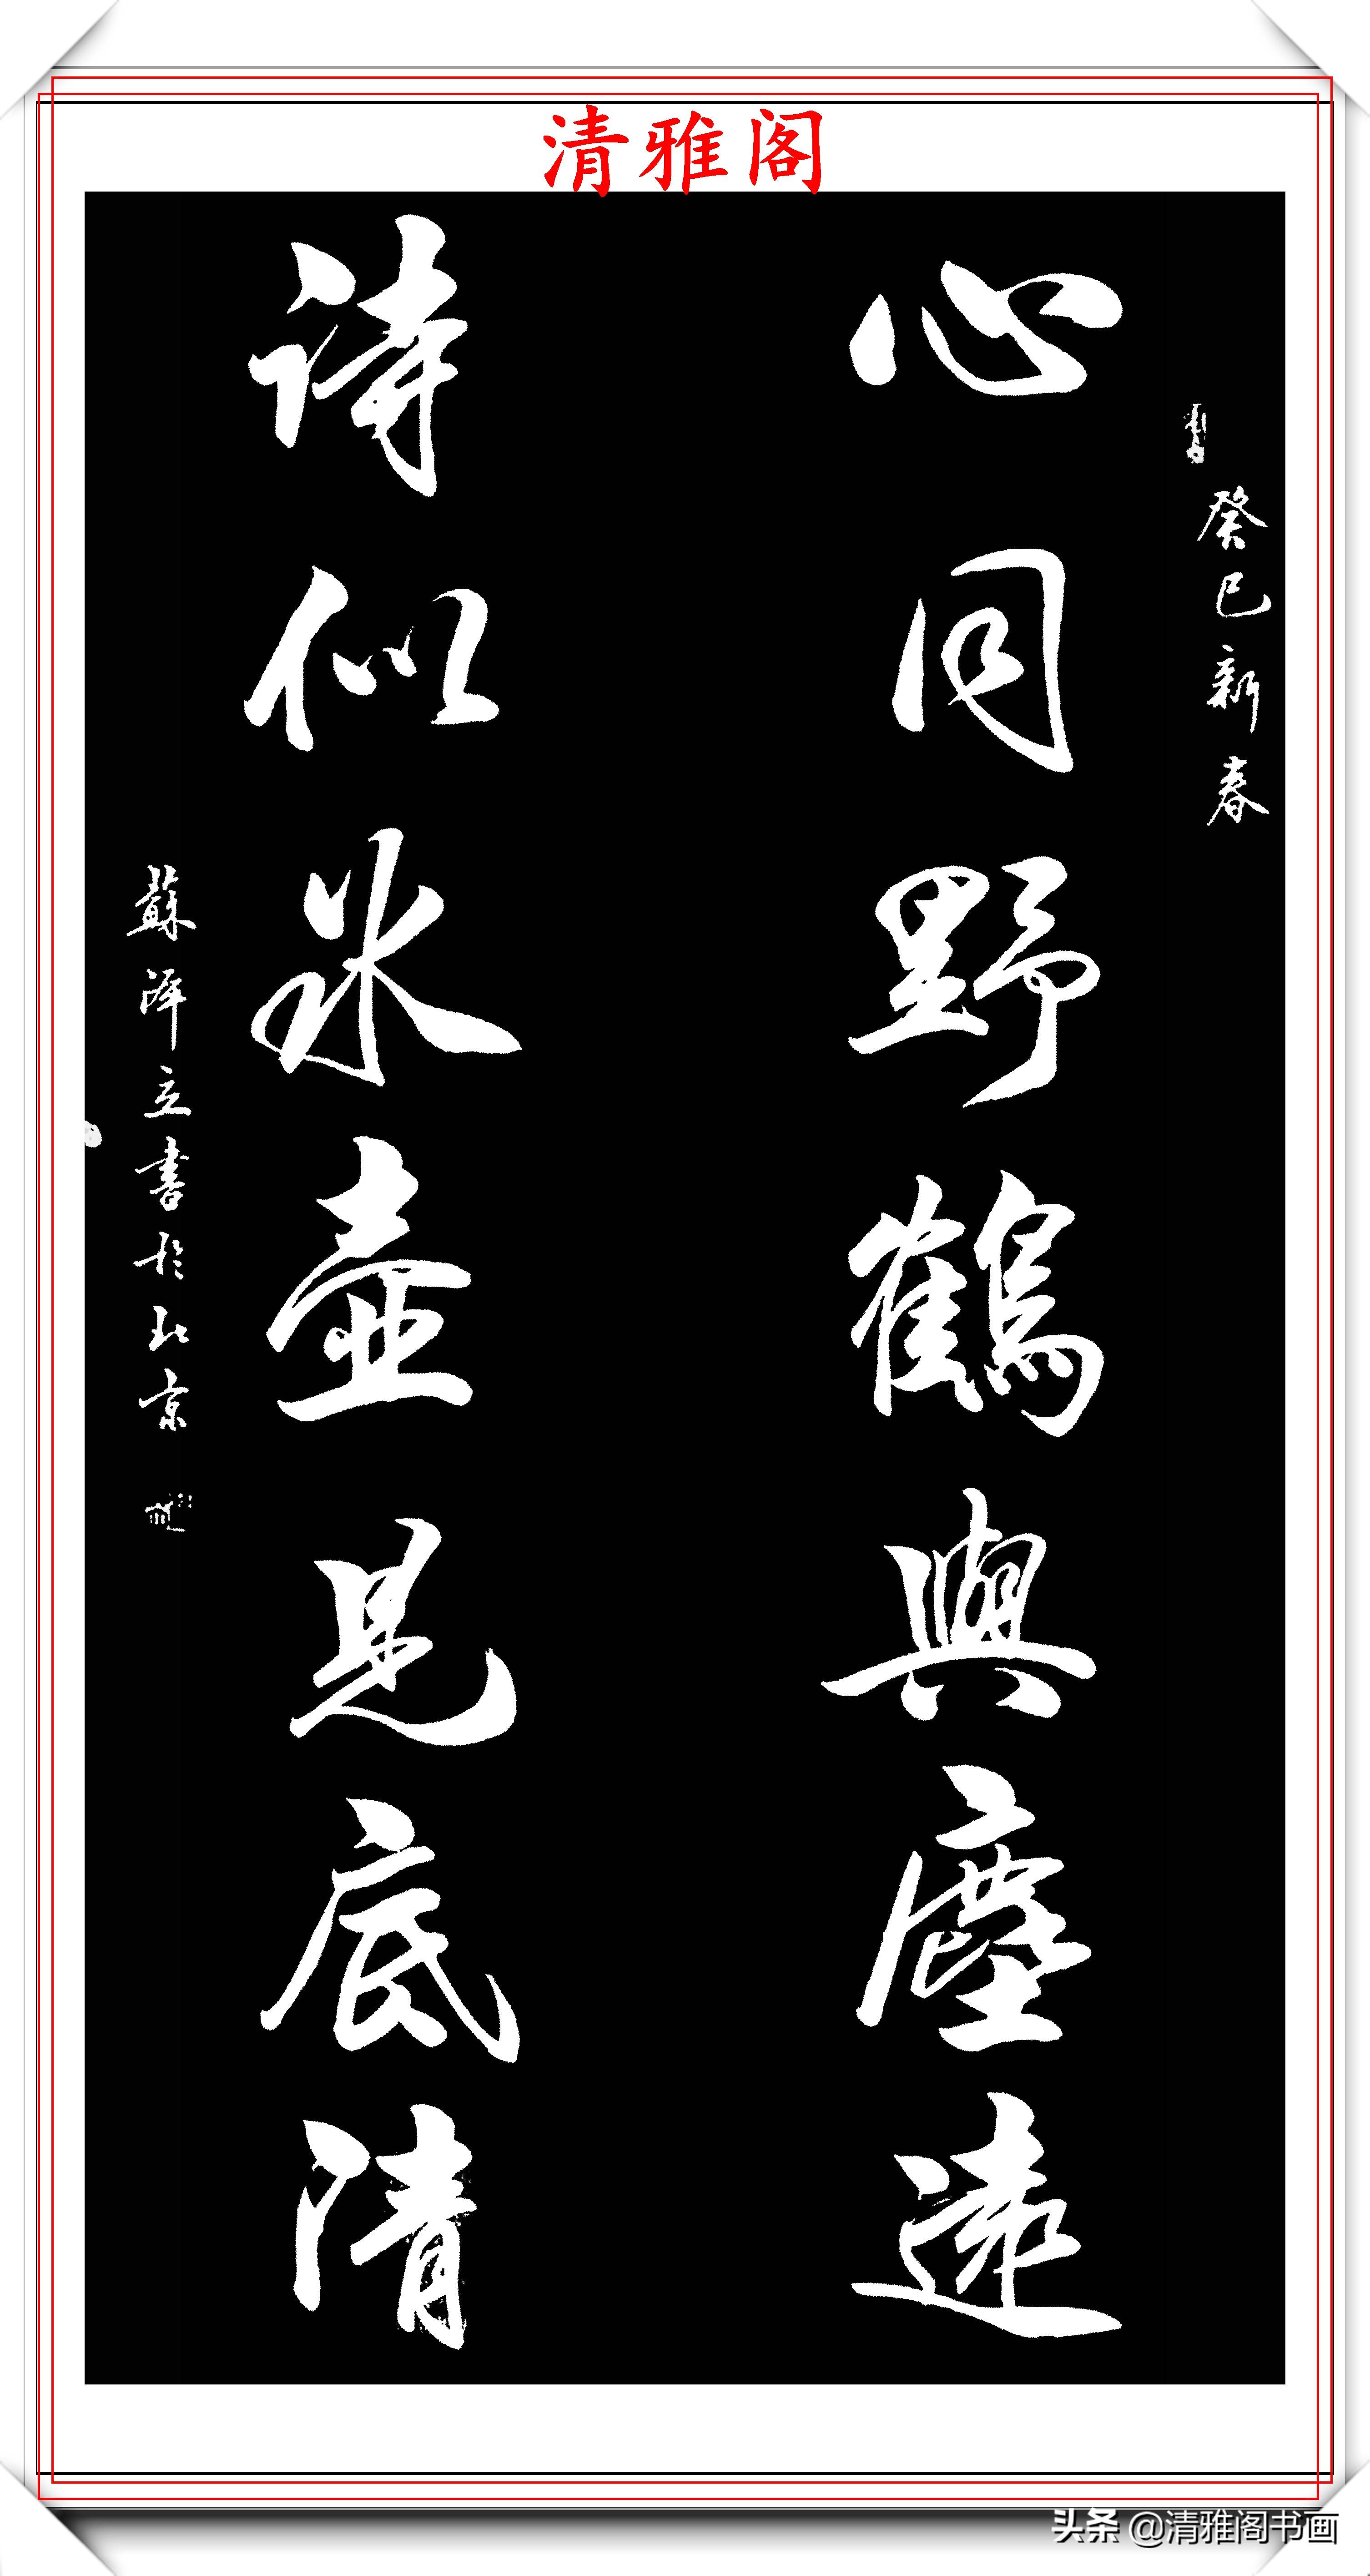 清雅阁
癸巳新春
心同野鶴與塵遠
詩似冰壺見底清
蘇澤立書於北京
头条 @清雅阁书画